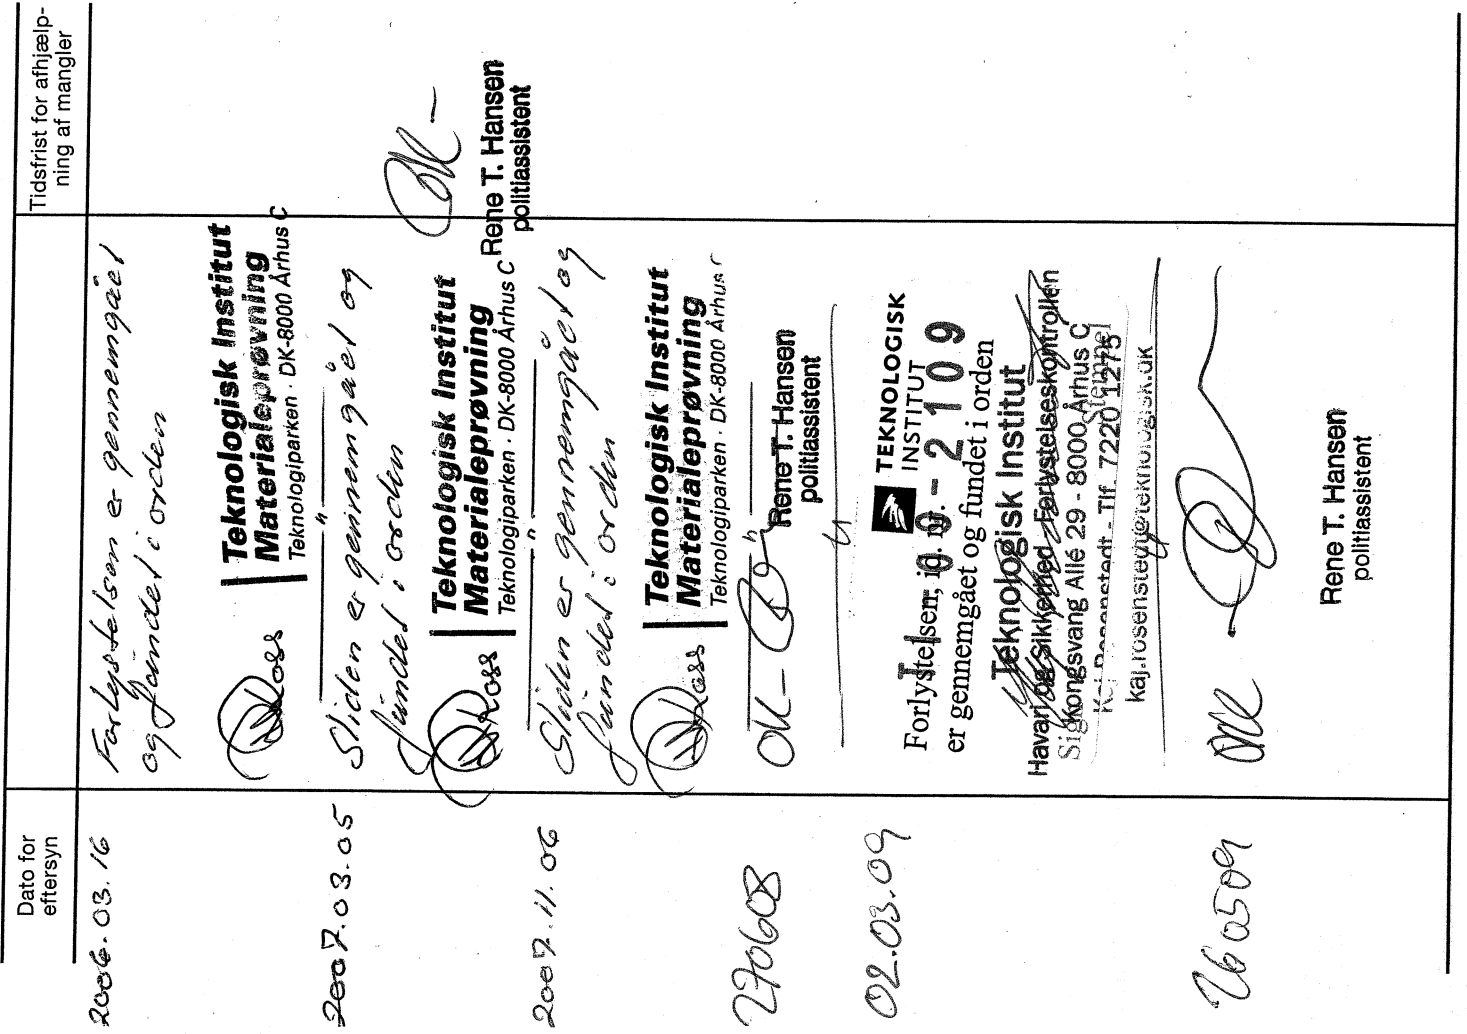 Dato for
eftersyn
Tidsfrist for afhjælp-
ning af mangler
2006.03.16
Forlystelsen er gennemgået
og fundet i orden
Teknologisk Institut
Materialeprøvning
Teknologiparken · DK-8000 Århus C
2007.03.05
Sliden er gennemgået og
fundet i orden
Teknologisk Institut
Materialeprøvning
Teknologiparken · DK-8000 Århus C
OK-
Rene T. Hansen
politiassistent
2007.11.06
Sliden er gennemgået og
fundet i orden
Teknologisk Institut
Materialeprøvning
Teknologiparken · DK-8000 Århus
270608
OK-
Rene T. Hansen
politiassistent
02.03.09
TEKNOLOGISK
INSTITUT
Forlystelsen, id. nr. 09-2109
er gennemgået og fundet i orden
Teknologisk Institut
Havari og Sikkerhed Forlystelseskontrollen
Kongsvang Allé 29 - 8000 Århus C
Stempel
Kaj Rosenstedt - Tlf. 7220 1275
kaj.rosensted@teknologisk.dk
260509
OK
Rene T. Hansen
politiassistent